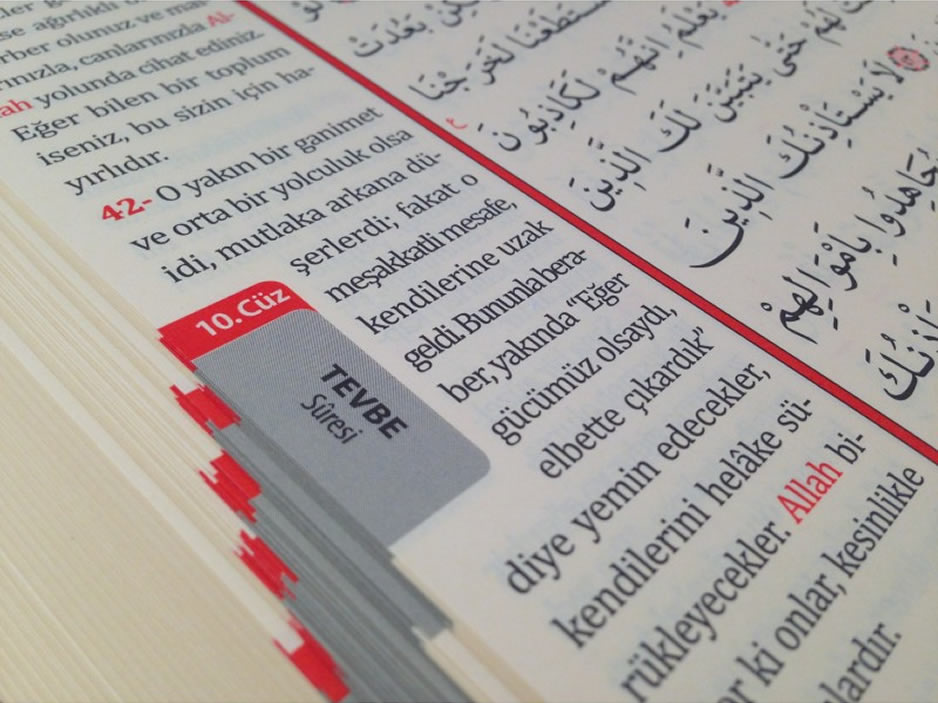 se ağırlıklı
rber olunuz ve
rınızla, canlarınızla Al-
ah yolunda cihat ediniz.
Eğer bilen bir toplum
iseniz, bu sizin için ha-
yırlıdır.
42- O yakın bir ganimet
ve orta bir yolculuk olsa
idi, mutlaka arkana dü-
şerlerdi; fakat o
meşakkatli mesafe,
kendilerine uzak
geldi. Bununla bera-
ber, yakında “Eğer
gücümüz olsaydı,
elbette çıkardık”
diye yemin edecekler,
kendilerini helâke sü-
rükleyecekler. Allah bi-
ki onlar, kesinlikle
lardır.
10.Cüz
TEVBE
Sûresi
بَعُدَتْ
لَخَرَجْنَا
يَعْلَمُ اِنَّهُمْ لَكَاذِبُونَ
لَهُمْ حَتّٰى يَتَبَيَّنَ لَكَ الَّذِينَ
لَا يَسْتَأْذِنُكَ الَّذِينَ
بِاَمْوَالِهِمْ